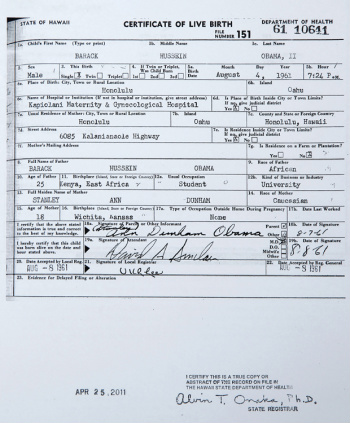 STATE OF HAWAII CERTIFICATE OF LIVE BIRTH DEPARTMENT OF HEALTH
FILE NUMBER 151 61 10641
1a. Child's First Name (Type or print) 1b. Middle Name 1c. Last Name
BARACK HUSSEIN OBAMA, II
2. Sex 3. This Birth 4. If Twin or Triplet, Was Child Born 5a. Birth Date Month Day Year 5b. Hour
Male Single X Twin Triplet 1st 2nd 3rd August 4, 1961 7:24 P.M.
6a. Place of Birth: City, Town or Rural Location 6b. Island
Honolulu Oahu
6c. Name of Hospital or Institution (If not in hospital or institution, give street address) 6d. Is Place of Birth Inside City or Town Limits? If no, give judicial district
Kapiolani Maternity & Gynecological Hospital Yes X No
7a. Usual Residence of Mother: City, Town or Rural Location 7b. Island 7c. County and State or Foreign Country
Honolulu Oahu Honolulu, Hawaii
7d. Street Address 7e. Is Residence Inside City or Town Limits? If no, give judicial district
6085 Kalanianaole Highway Yes X No
7f. Mother's Mailing Address 7g. Is Residence on a Farm or Plantation?
Yes No X
8. Full Name of Father 9. Race of Father
BARACK HUSSEIN OBAMA African
10. Age of Father 11. Birthplace (Island, State or Foreign Country) 12a. Usual Occupation 12b. Kind of Business or Industry
25 Kenya, East Africa Student University
13. Full Maiden Name of Mother 14. Race of Mother
STANLEY ANN DUNHAM Caucasian
15. Age of Mother 16. Birthplace (Island, State or Foreign Country) 17a. Type of Occupation Outside Home During Pregnancy 17b. Date Last Worked
18 Wichita, Kansas None
I certify that the above stated information is true and correct to the best of my knowledge. 18a. Signature of Parent or Other Informant Parent Other 18b. Date of Signature
Ann Dunham Obama 8-7-61
I hereby certify that this child was born alive on the date and hour stated above. 19a. Signature of Attendant M.D. D.O. Midwife Other 19b. Date of Signature
David A Sinclair 8-8-61
20. Date Accepted by Local Reg. 21. Signature of Local Registrar 22. Date Accepted by Reg. General
AUG -8 1961 AUG -8 1961
23. Evidence for Delayed Filing or Alteration
APR 25, 2011
I CERTIFY THIS IS A TRUE COPY OR
ABSTRACT OF THE RECORD ON FILE IN
THE HAWAII STATE DEPARTMENT OF HEALTH
Alvin T. Onaka, Ph.D.
STATE REGISTRAR